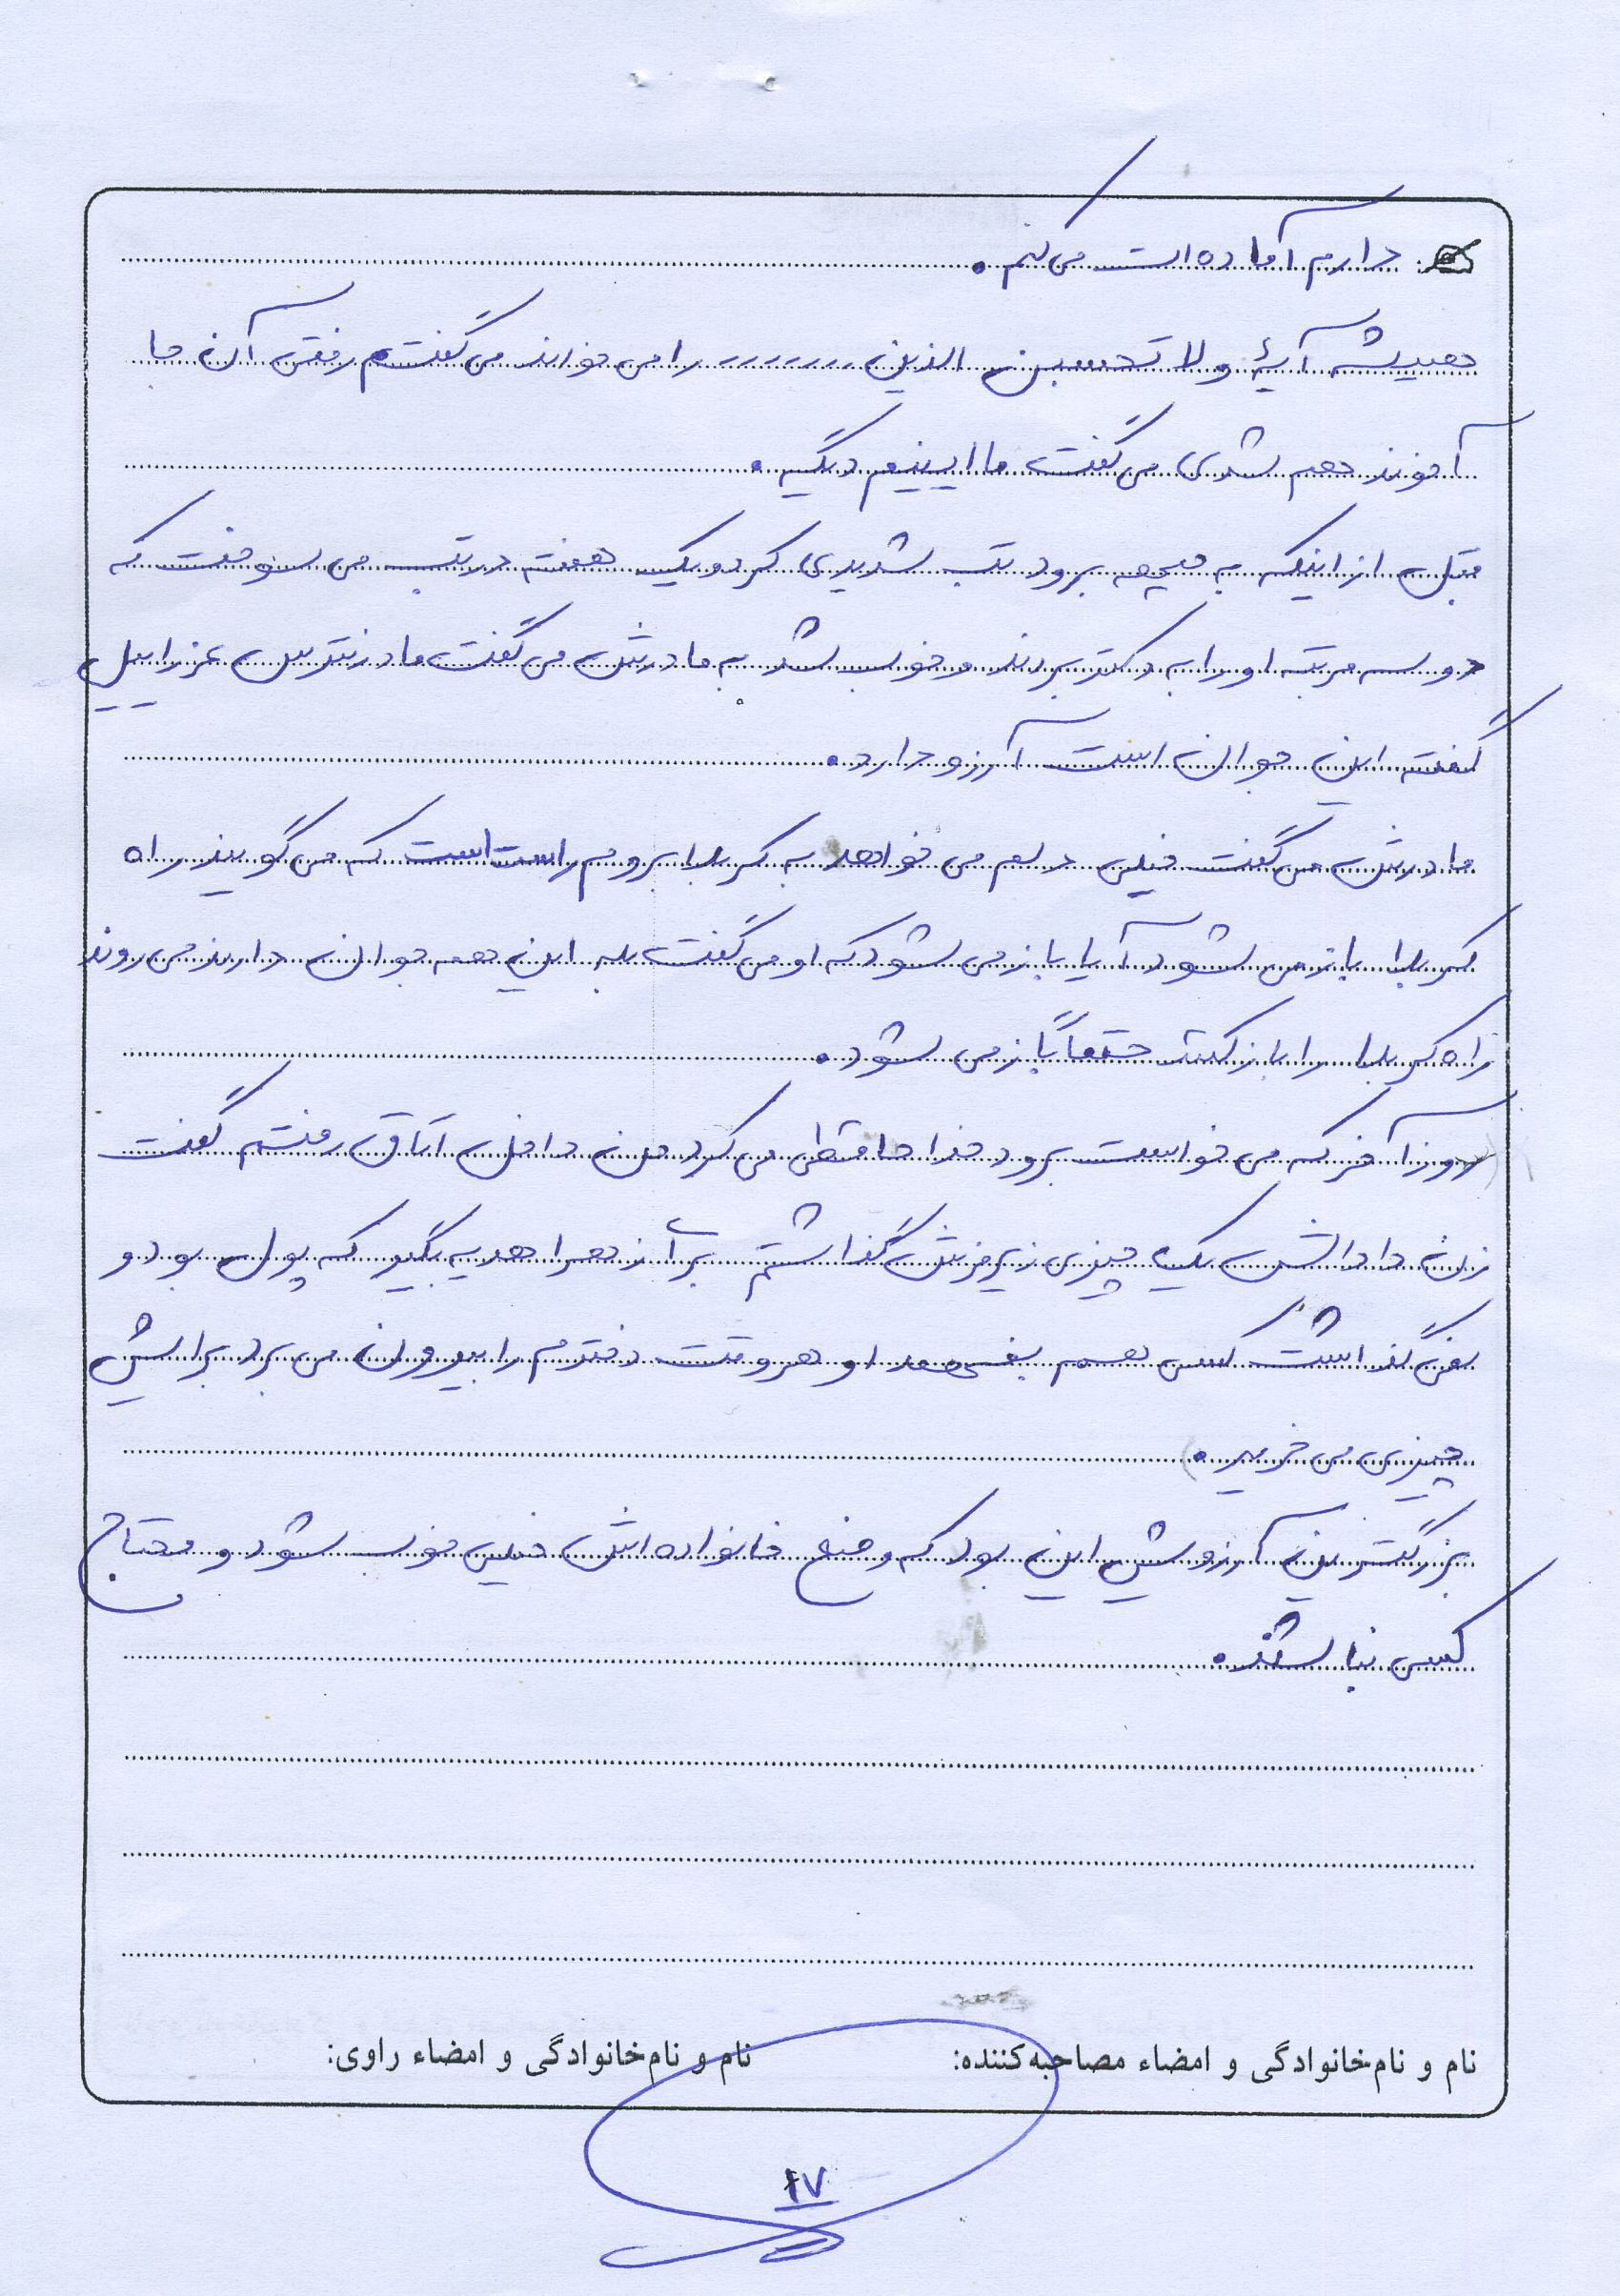 دارم آماده‌ات می‌کنم.
همیشه آیهٔ ولا تحسبن الذین ....... را می‌خواند می‌گفتم رفتی آن جا
آخوند هم شدی می‌گفت ما اینیم دیگیه.
قبل از اینکه به جبهه برود تب شدیدی کرد و یک هفته در تب می سوخت که
دو سه مرتبه او را به دکتر بردند و خوب شد به مادرش می گفت مادر نترس عزراییل
گفته این جوان است آرزو دارد.
مادرش می گفت خیلی دلم می خواهد به کربلا بروم راست است که می گویند راه
کربلا باز می شود آیا باز می شود که او می گفت بله این همه جوان دارند می روند
راه کربلا را باز کنند حتماً باز می شود.
روز آخر که می خواست برود خداحافظی می کرد من داخل اتاق رفتم گفت
زن داداش یک چیزی زیر فرش گذاشتم برا زهرا هدیه بگیر که پول بود و
نمی گذاشت کسی بفهمد او هر وقت دخترم را بیرون می برد برایش
چیزی می خرید.
بزرگترین آرزویش این بود که وضع خانواده اش خیلی خوب شود و محتاج
کسی نباشند.
نام و نام‌خانوادگی و امضاء مصاحبه‌کننده: نام و نام‌خانوادگی و امضاء راوی:
۱۷